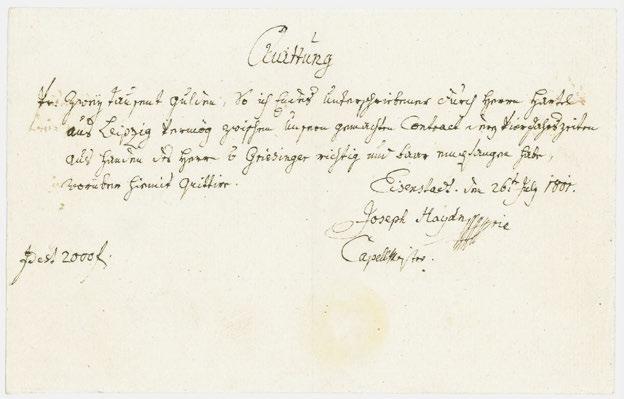 Quittung
pr. Zweÿ tausent gulden, So ich Endes unterschriebener durch Herrn Härtel
aus Leipzig vermög zwischen unsern gemachten Contract der Vier Jahrszeiten
aus handen des Herrn v Griesinger richtig und baar empfangen habe,
worüber hiemit Quittire.
Eisenstadt. den 26ten July 1801.
Joseph Haydn mpria
Capellmeister.
Id est 2000 f.